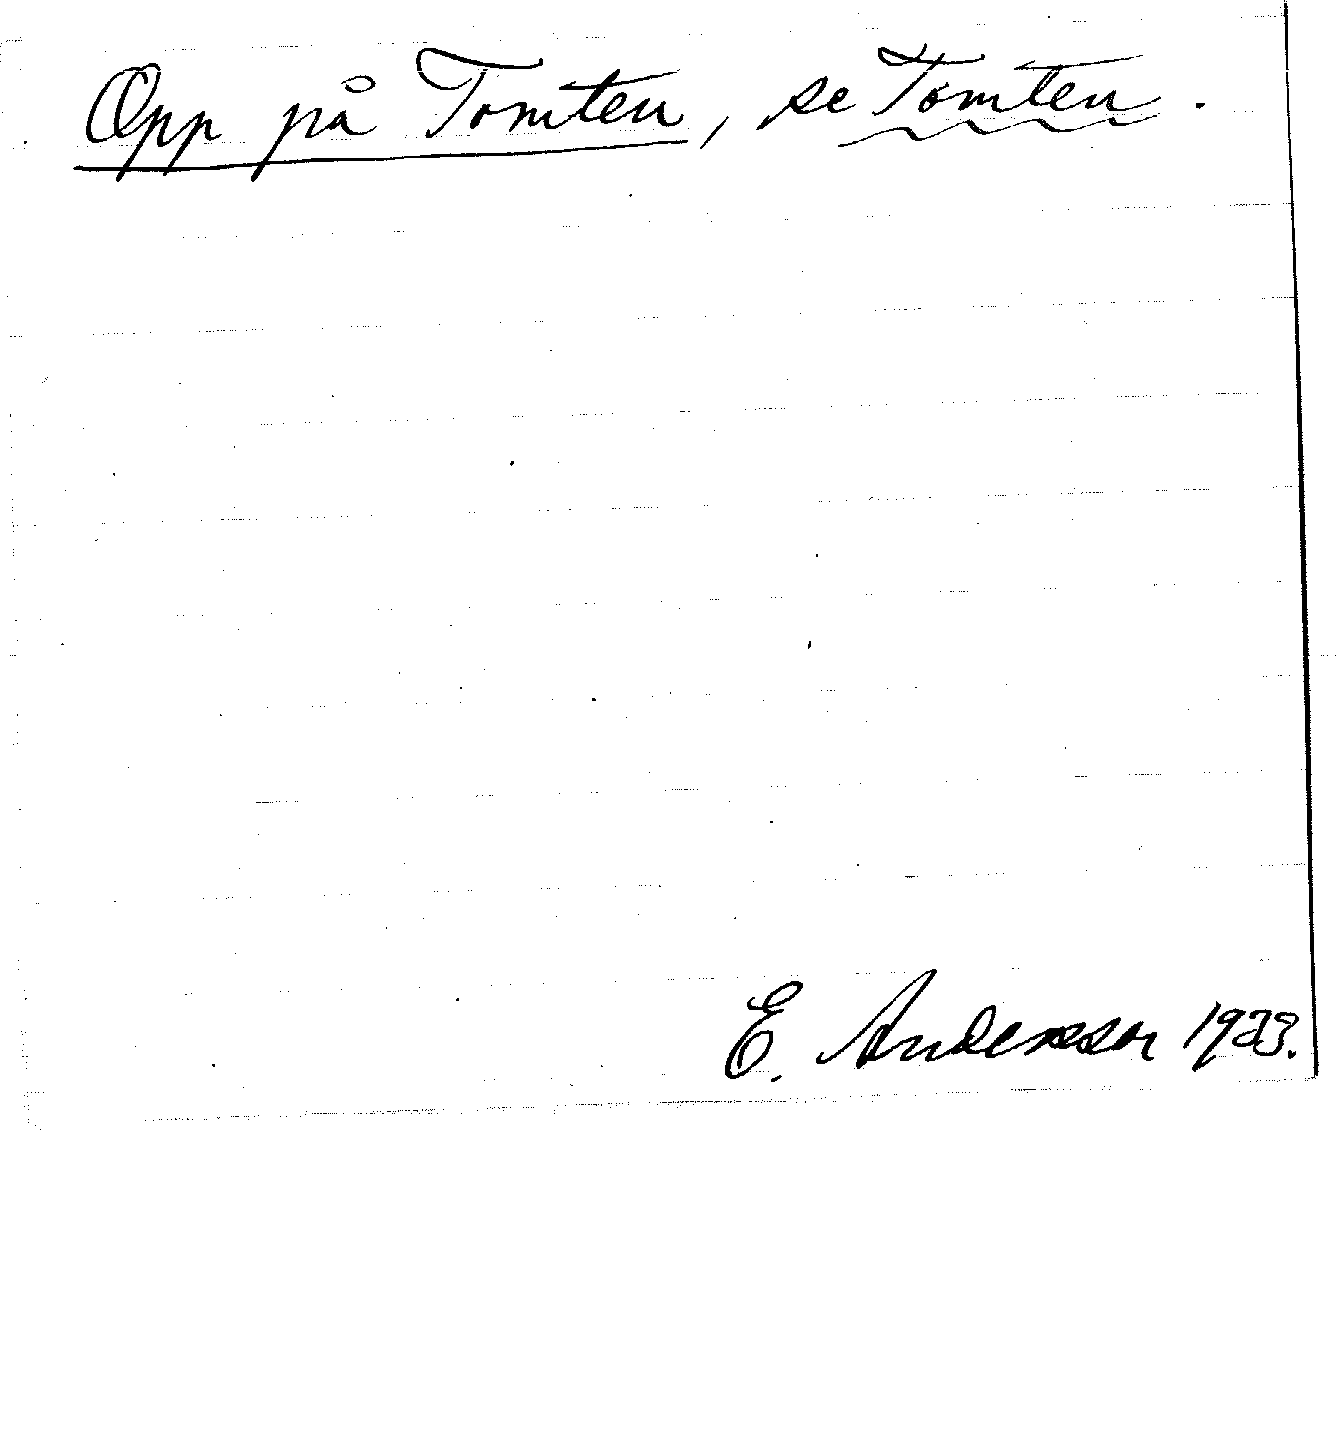 Opp på Tomten, se Tomten.
E. Andersson 1933.